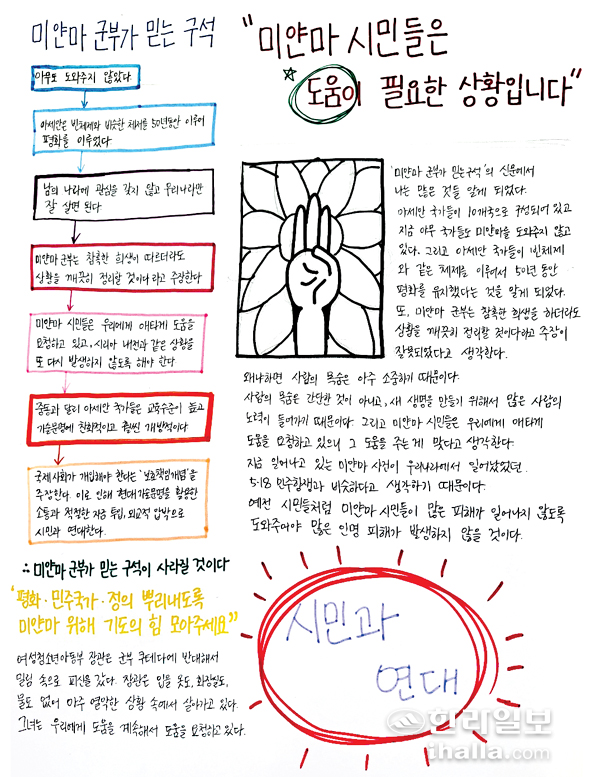 미얀마 군부가 믿는 구석
아무도 도와주지 않았다.
아세안은 빈체제와 비슷한 체제를 50년동안 이루어
평화를 이루었다
남의 나라에 관심을 갖지 않고 우리나라만
잘 살면 된다
미얀마 군부는 참혹한 희생이 따르더라도
상황을 깨끗히 정리할 것이다라고 주장한다
미얀마 시민들은 우리에게 애타게 도움을
요청하고 있고, 시리아 내전과 같은 상황을
또 다시 발생하지 않도록 해야 한다
중동과 달리 아세안 국가들은 교육수준이 높고
기술문명에 친화적이고 훨씬 개방적이다
국제사회가 개입해야 한다는 '보호책임개념'을
주장한다. 이로 인해 현대기술문명을 활용한
소통과 적정한 자금 투입, 외교적 압박으로
시민과 연대한다.
∴ 미얀마 군부가 믿는 구석이 사라질 것이다
'평화·민주국가·정의 뿌리내도록
미얀마 위해 기도의 힘 모아주세요"
여성청소년아동부 장관은 군부 쿠데타에 반대해서
밀림 속으로 피신을 갔다. 장관은 입을 옷도, 화장실도,
물도 없어 아주 열악한 상황 속에서 살아가고 있다.
그녀는 우리에게 도움을 계속해서 도움을 요청하고 있다.
"미얀마 시민들은
도움이 필요한 상황입니다"
'미얀마 군부가 믿는구석'의 신문에서
나는 많은 것들 알게 되었다.
아세안 국가들이 10개국으로 구성되어 있고
지금 아무 국가들도 미얀마를 도와주지 않고
있다. 그리고 아세안 국가들이 빈체제
와 같은 체제를 이루어서 50년 동안
평화를 유지했다는 것을 알게 되었다.
또, 미얀마 군부는 참혹한 희생을 하더라도
상황을 깨끗히 정리할 것이다라고 주장이
잘못되었다고 생각한다.
왜냐하면 사람의 목숨은 아주 소중하기 때문이다.
사람의 목숨은 간단한 것이 아니고, 새 생명을 만들기 위해서 많은 사람의
노력이 들어가기 때문이다. 그리고 미얀마 시민들은 우리에게 애타게
도움을 요청하고 있으니 그 도움을 주는 게 맞다고 생각한다.
지금 일어나고 있는 미얀마 사건이 우리나라에서 일어났었던.
5·18 민주항쟁과 비슷하다고 생각하기 때문이다.
예전 시민들처럼 미얀마 시민들이 많은 피해가 일어나지 않도록
도와주어야 많은 인명 피해가 발생하지 않을 것이다.
시민과
연대
한라일보
ihalla.com